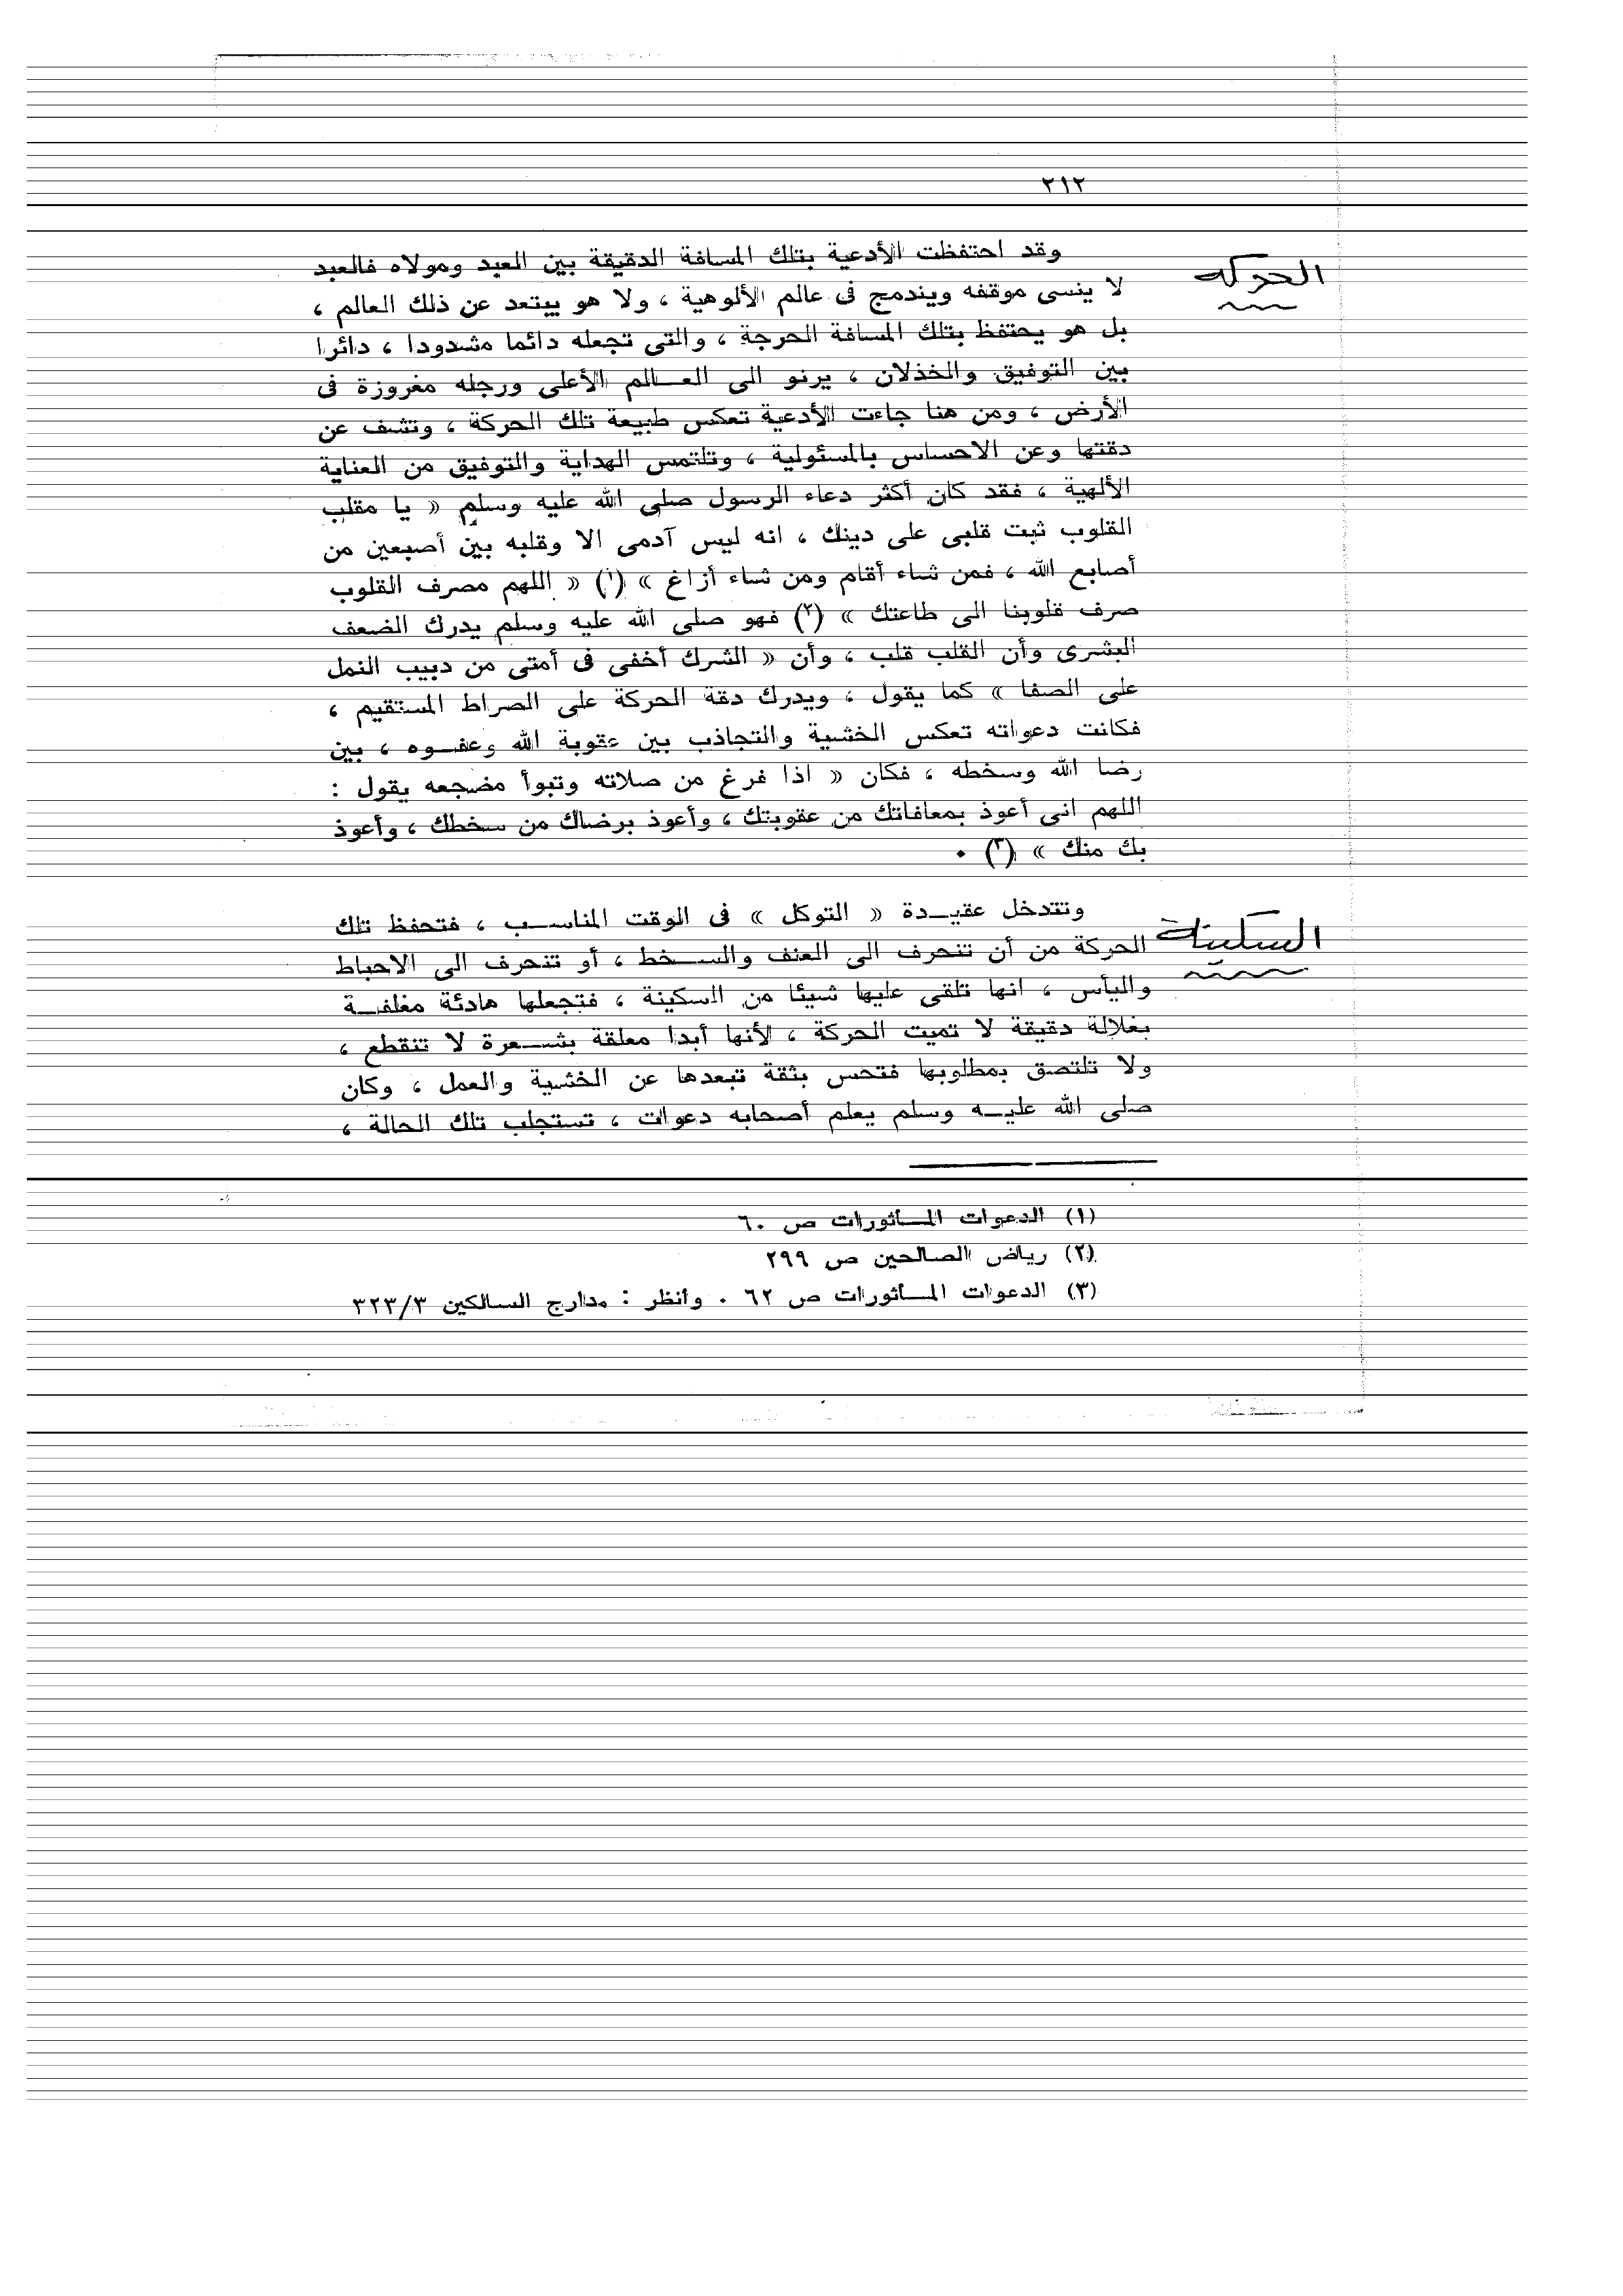 ٢١٢
الحركه
وقد احتفظت الأدعية بتلك المسافة الدقيقة بين العبد ومولاه فالعبد
لا ينسى موقفه ويندمج فى عالم الألوهية ، ولا هو يبتعد عن ذلك العالم ،
بل هو يحتفظ بتلك المسافة الحرجة ، والتى تجعله دائما مشدودا ، دائرا
بين التوفيق والخذلان ، يرنو الى العـالم الأعلى ورجله مغروزة فى
الأرض ، ومن هنا جاءت الأدعية تعكس طبيعة تلك الحركة ، وتشف عن
دقتها وعن الاحساس بالمسئولية ، وتلتمس الهداية والتوفيق من العناية
الألهية ، فقد كان أكثر دعاء الرسول صلى الله عليه وسلم « يا مقلب
القلوب ثبت قلبى على دينك ، انه ليس آدمى الا وقلبه بين أصبعين من
أصابع الله ، فمن شاء أقام ومن شاء أزاغ » (١) « اللهم مصرف القلوب
صرف قلوبنا الى طاعتك » (٢) فهو صلى الله عليه وسلم يدرك الضعف
البشرى وأن القلب قلب ، وأن « الشرك أخفى فى أمتى من دبيب النمل
على الصفا » كما يقول ، ويدرك دقة الحركة على الصراط المستقيم ،
فكانت دعواته تعكس الخشية والتجاذب بين عقوبة الله وعفـوه ، بين
رضا الله وسخطه ، فكان « اذا فرغ من صلاته وتبوأ مضجعه يقول :
اللهم انى أعوذ بمعافاتك من عقوبتك ، وأعوذ برضاك من سخطك ، وأعوذ
بك منك » (٣) .
السكينة
وتتدخل عقيـدة « التوكل » فى الوقت المناسـب ، فتحفظ تلك
الحركة من أن تنحرف الى العنف والسـخط ، أو تنحرف الى الاحباط
واليأس ، انها تلقى عليها شيئا من السكينة ، فتجعلها هادئة مغلفـة
بغلالة دقيقة لا تميت الحركة ، لأنها أبدا معلقة بشـعرة لا تنقطع ،
ولا تلتصق بمطلوبها فتحس بثقة تبعدها عن الخشية والعمل ، وكان
صلى الله عليـه وسلم يعلم أصحابه دعوات ، تستجلب تلك الحالة ،
(١) الدعوات المـأثورات ص ٦٠
(٢) رياض الصالحين ص ٢٩٩
(٣) الدعوات المـأثورات ص ٦٢ . وانظر : مدارج السالكين ٣٢٣/٣